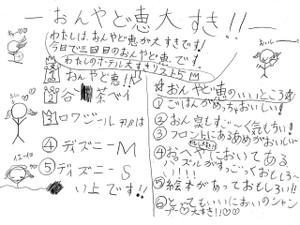 －おんやど恵大すき!!－
わたしは、おんやど恵が大すきです!
今日で三回目のおんやど恵です。
わたしのホテル大すきリスト5
1 おんやど恵!!
2
3 ロワジール
④ ディズニーM
⑤ ディズニーS
い上です!!
☆おんやど恵のいいところ☆
①ごはんがめっちゃおいしい!
②おん気もちい!
③フロントにあるあめがおいしい
④おへやにおいてある
パズルがすっごくおもしろ〜
い!!!
⑤絵本があっておもしろい!!
⑥とってもいいにおいのシャン
プー♡大すき!!♡♡